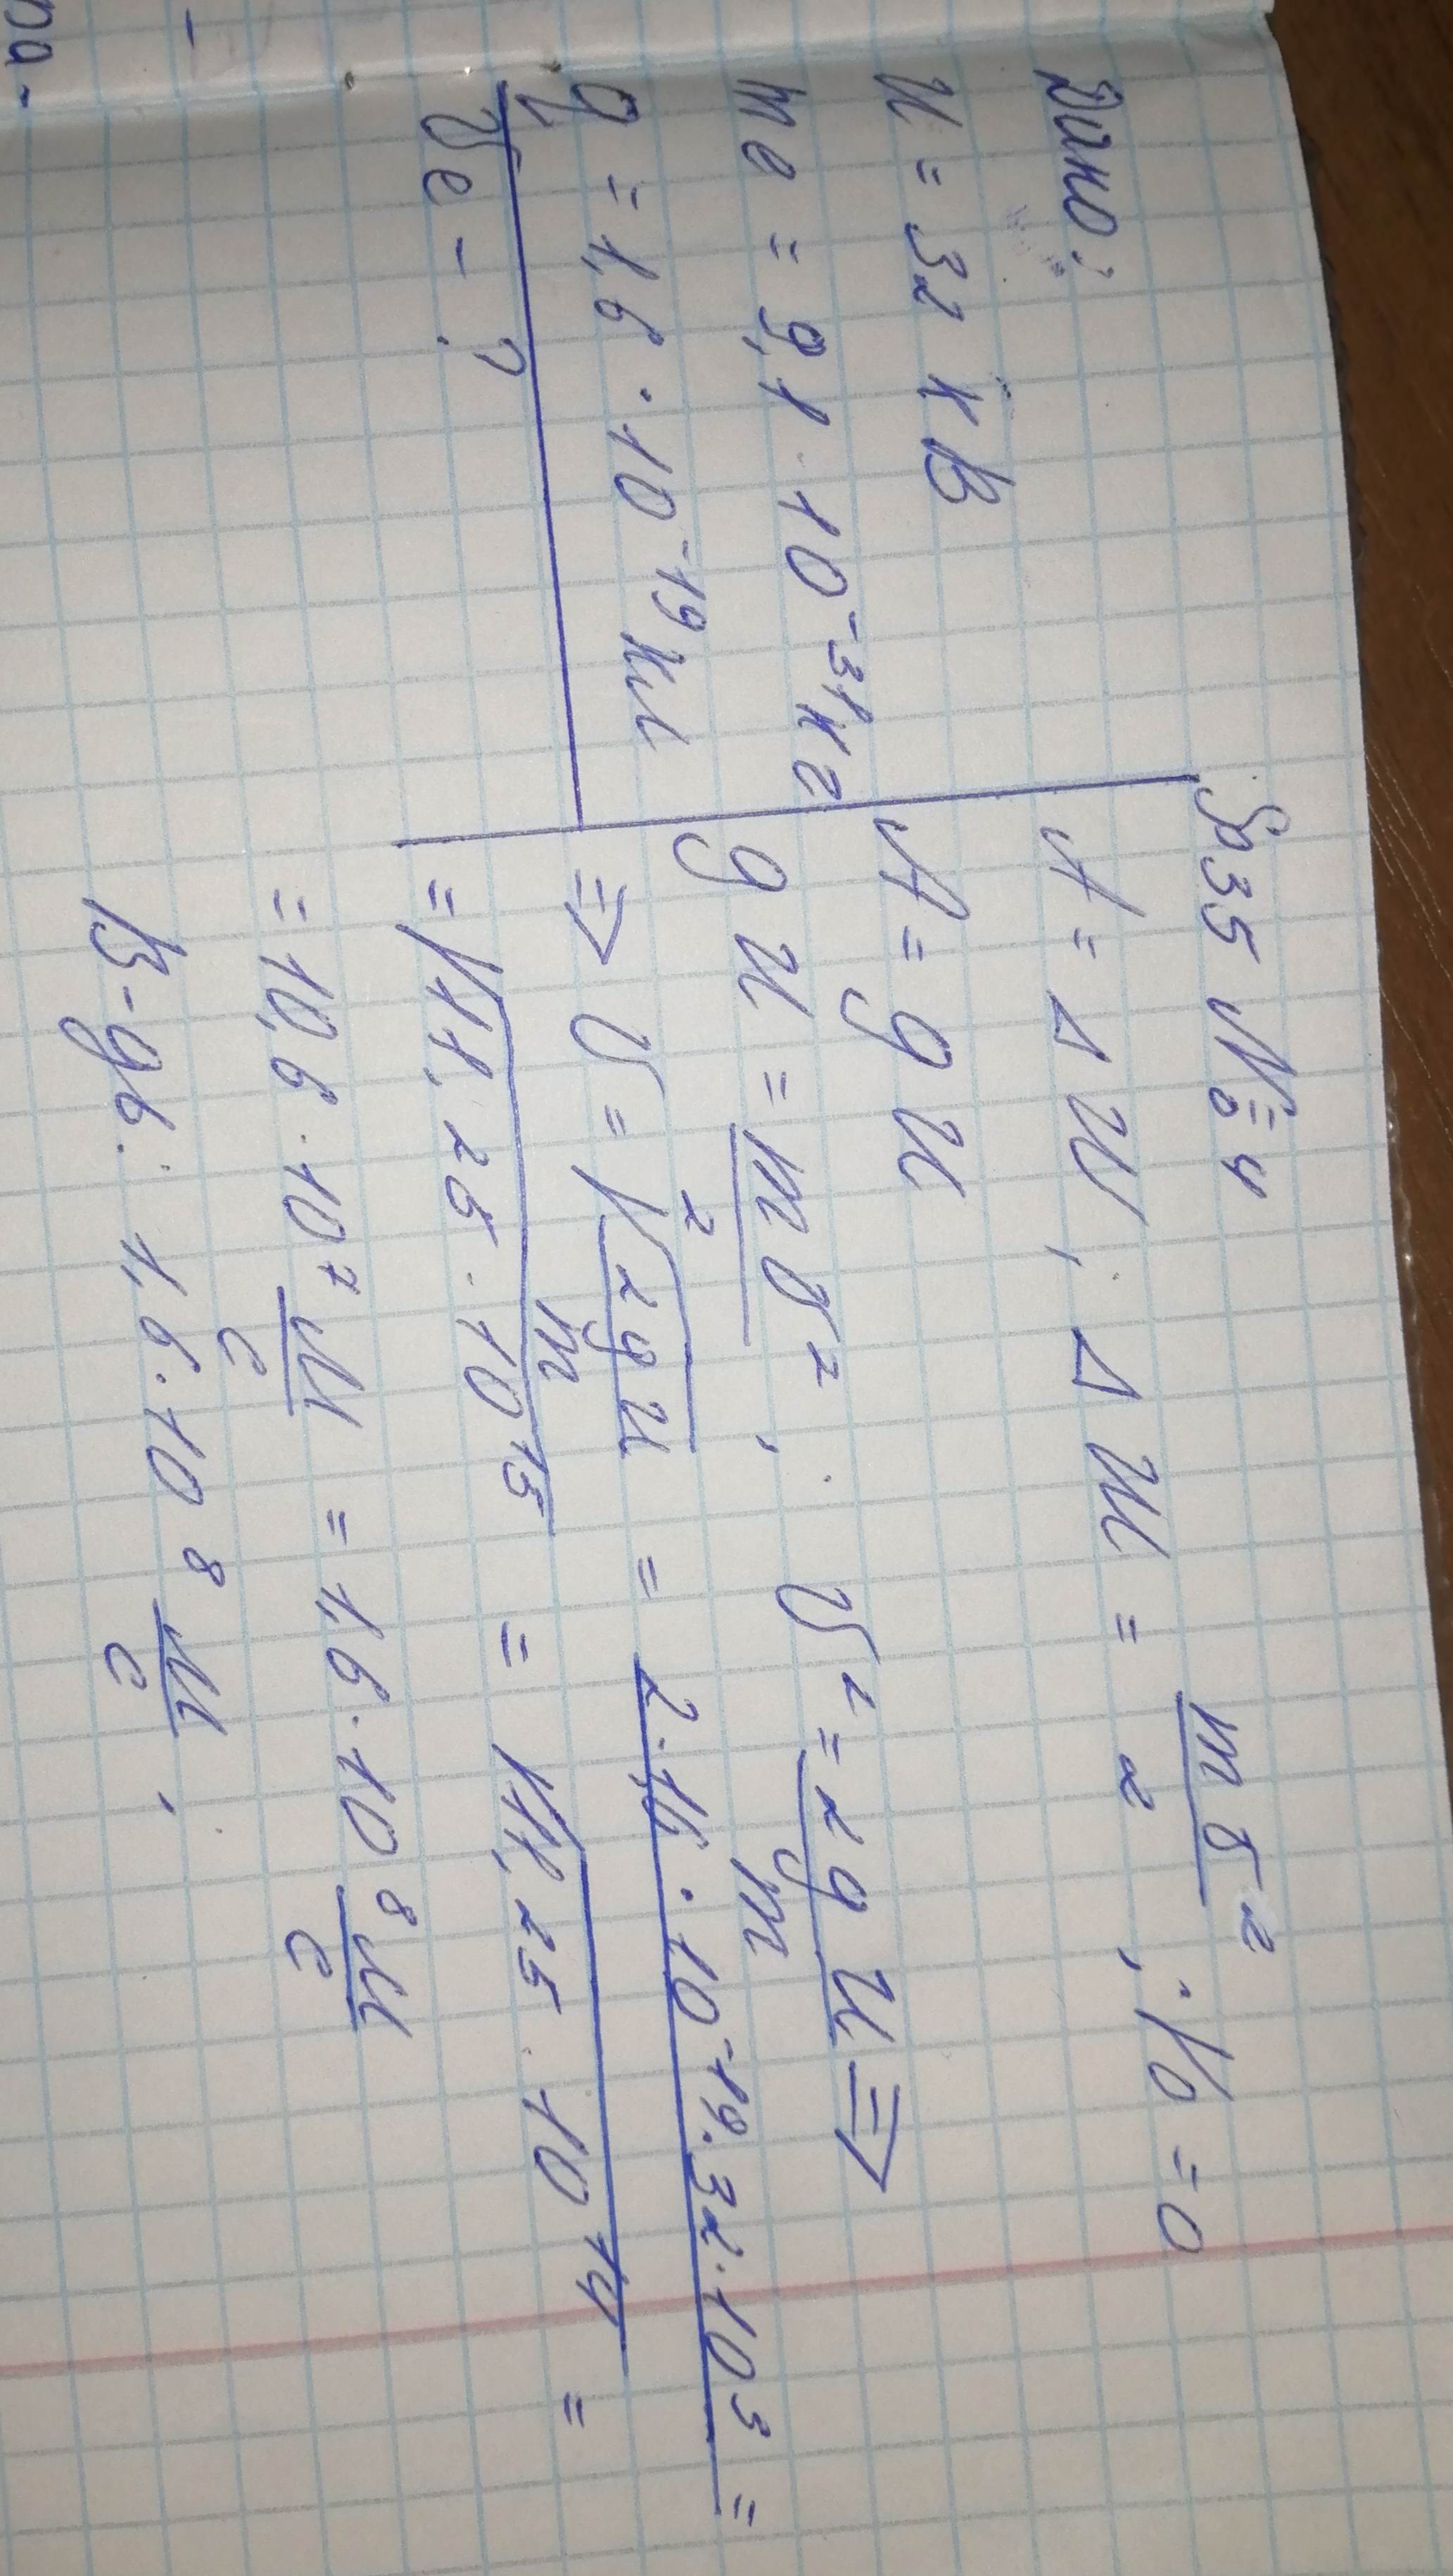 §35 №4
Дано:
U = 32 кВ
me = 9,1 · 10⁻³¹ кг
q = 1,6 · 10⁻¹⁹ Кл
υe - ?
A = ΔW; ΔW = mυ²/2; V₀ = 0
A = qU
qU = mυ²/2; υ² = 2qU/m ⇒
⇒ υ = √2qU/m = 2·1,6·10⁻¹⁹·32·10³ =
= √11,25·10¹⁵ = √11,25·10¹⁴ =
= 10,6·10⁷ м/с = 1,6·10⁸ м/с
В-дь: 1,6·10⁸ м/с.
ра-